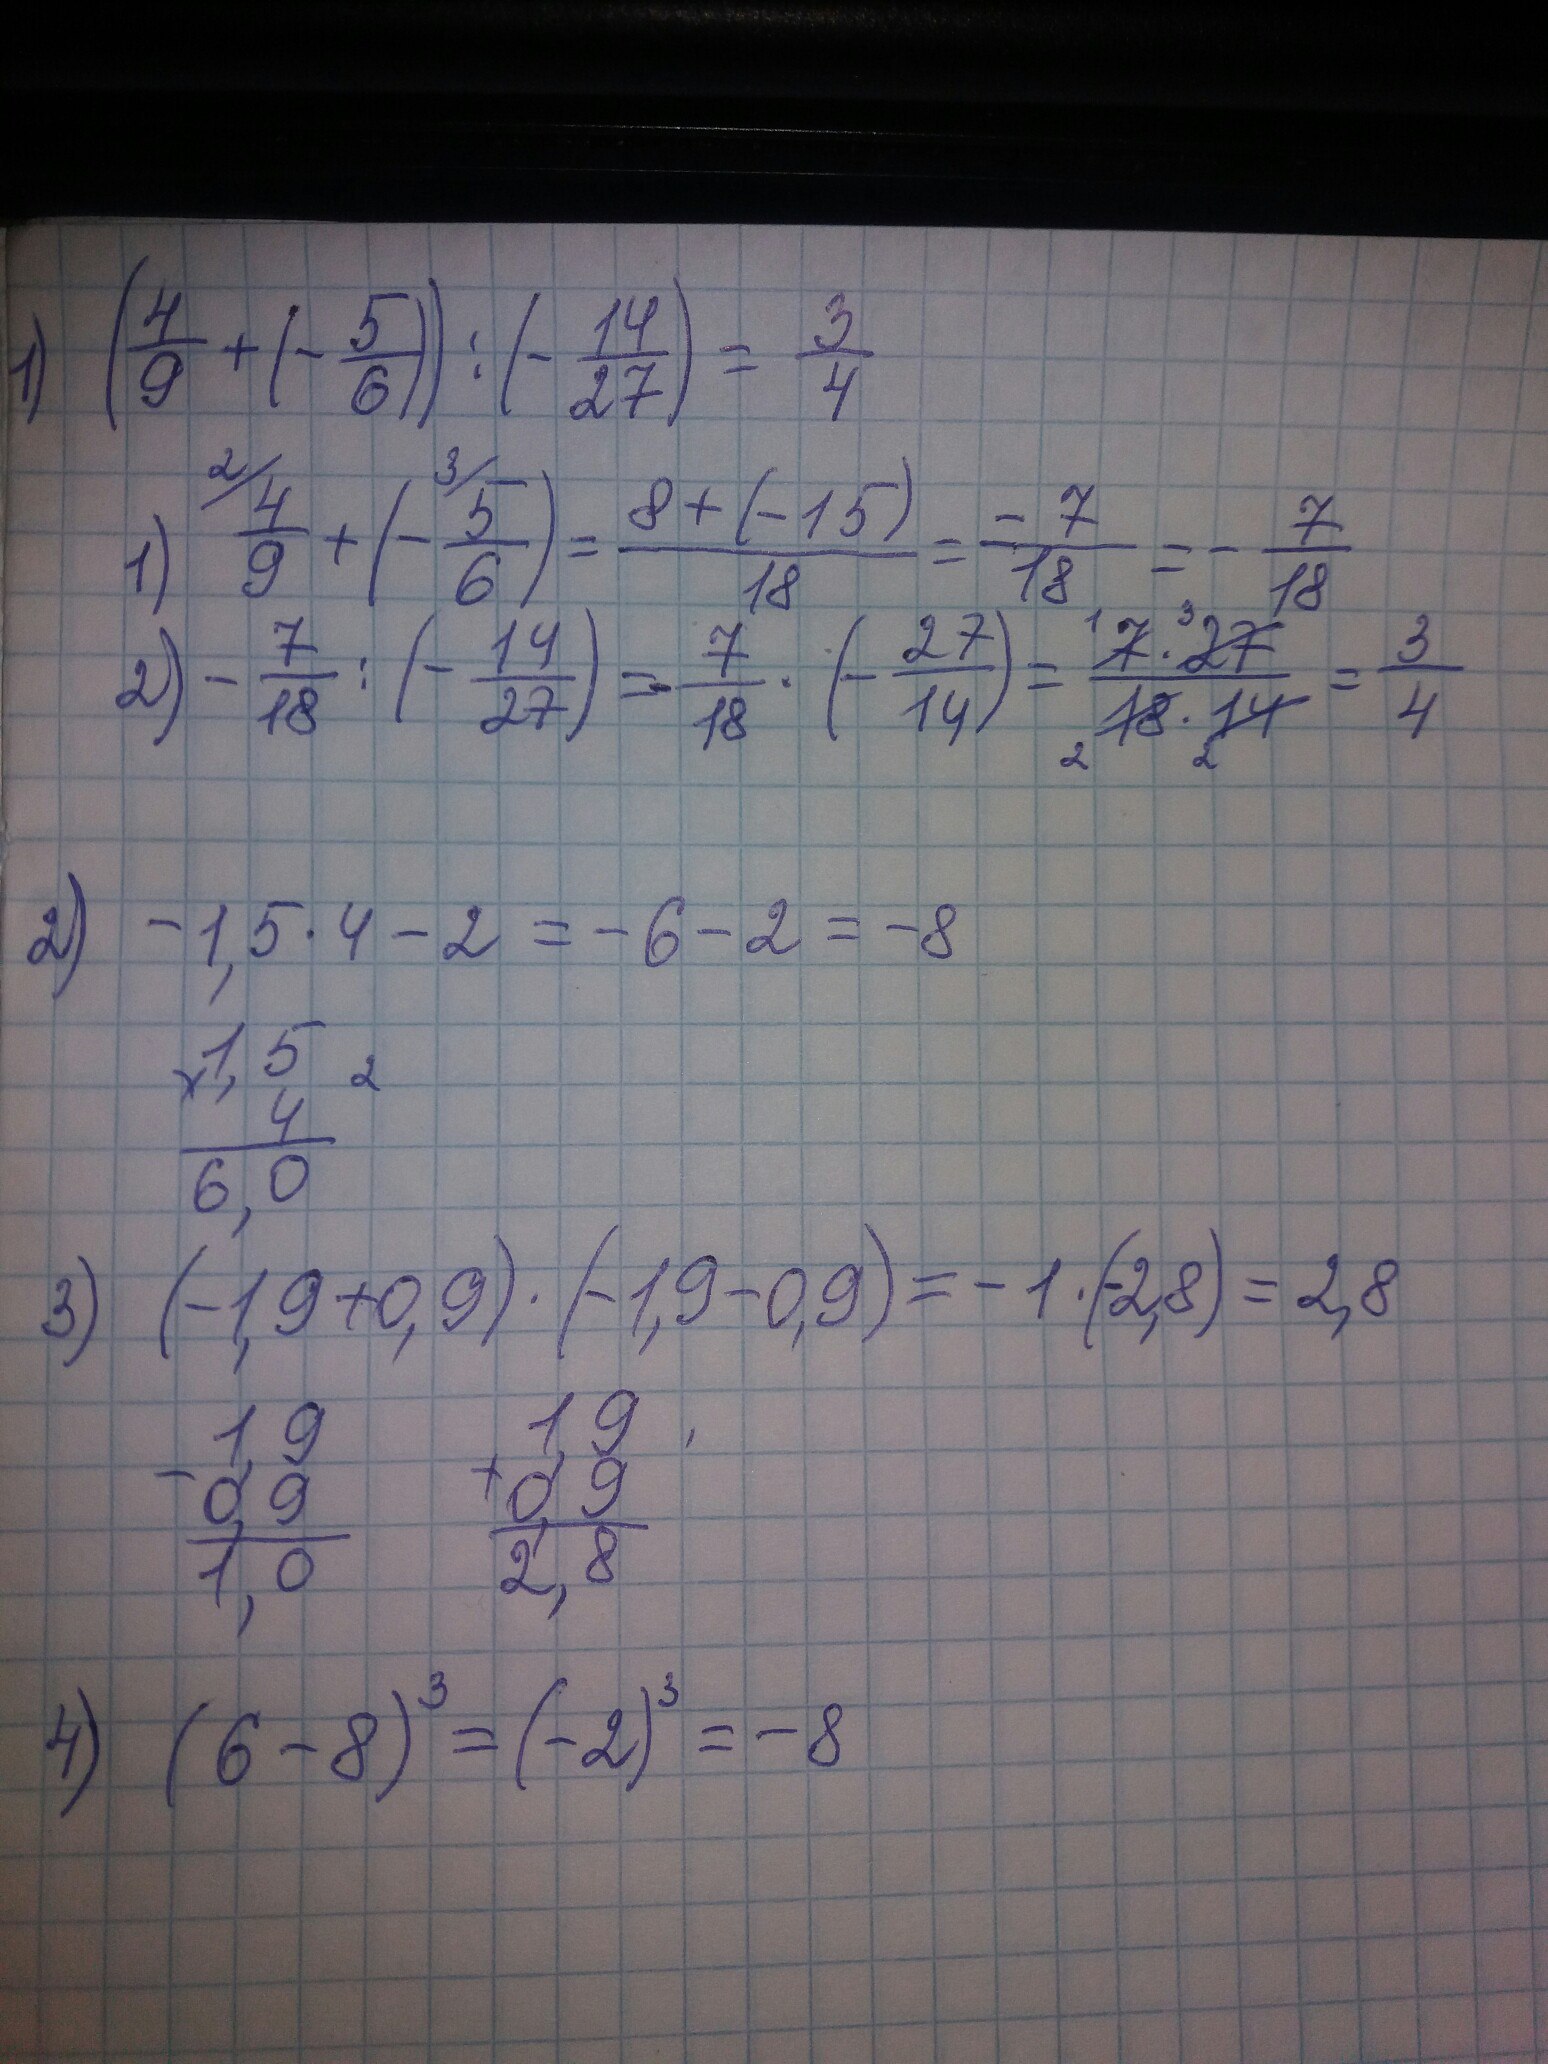 1) (4/9 + (- 5/6)) : (- 14/27) = 3/4
1) 2/ 4/9 + (- 3/ 5/6) = 8 + (-15)/18 = -7/18 = - 7/18
2) - 7/18 : (- 14/27) = - 7/18 · (- 27/14) = 1 7 · 3 27 / 2 18 · 2 14 = 3/4
2) -1,5 · 4 - 2 = - 6 - 2 = -8
x 1,5 2
4
6,0
3) (-1,9+0,9) · (-1,9-0,9) = -1 · (-2,8) = 2,8
- 1,9 + 1,9
0,9 0,9
1,0 2,8
4) (6 - 8)³ = (-2)³ = -8